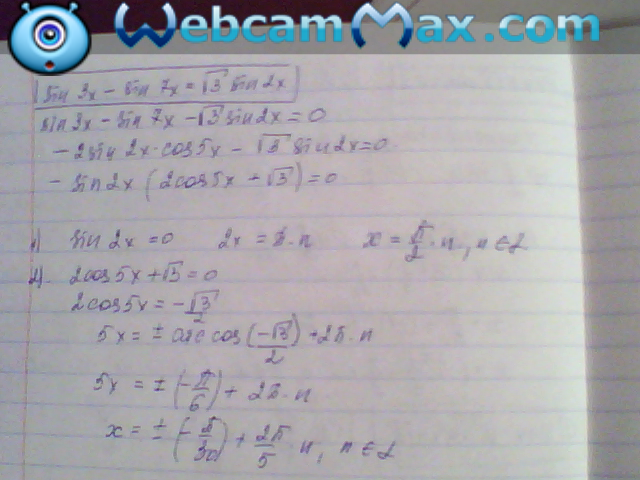 WebcamMax.com
sin 3x - sin 7x = √3 sin 2x
sin 3x - sin 7x - √3 sin 2x = 0
- 2 sin 2x · cos 5x - √3 sin 2x = 0
- sin 2x (2 cos 5x + √3) = 0
1) sin 2x = 0 2x = π · n x = π/2 · n, n ∈ Z
2) 2 cos 5x + √3 = 0
2 cos 5x = -√3/2
5x = ± arc cos (-√3/2) + 2π · n
5x = ± (-π/6) + 2π · n
x = ± (-π/30) + 2π/5 · n, n ∈ Z